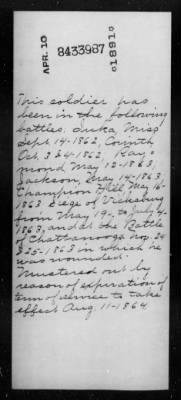 APR. 10
8433987
1891
This soldier has
been in the following
battles. Iuka, Miss
Sept. 14-1862, Corinth
Oct. 3 & 4-1862. Ray-
mond May 12-1863,
Jackson, May 14-1863
Champion Hill May 16-
1863 Siege of Vicksburg
from May 19-, to July 4-
1863, and at the Battle
of Chattanooga Nov. 24
& 25-1863 in which he
was wounded.
Mustered out by
reason of expiration of
term of service to take
effect Aug. 11-1864